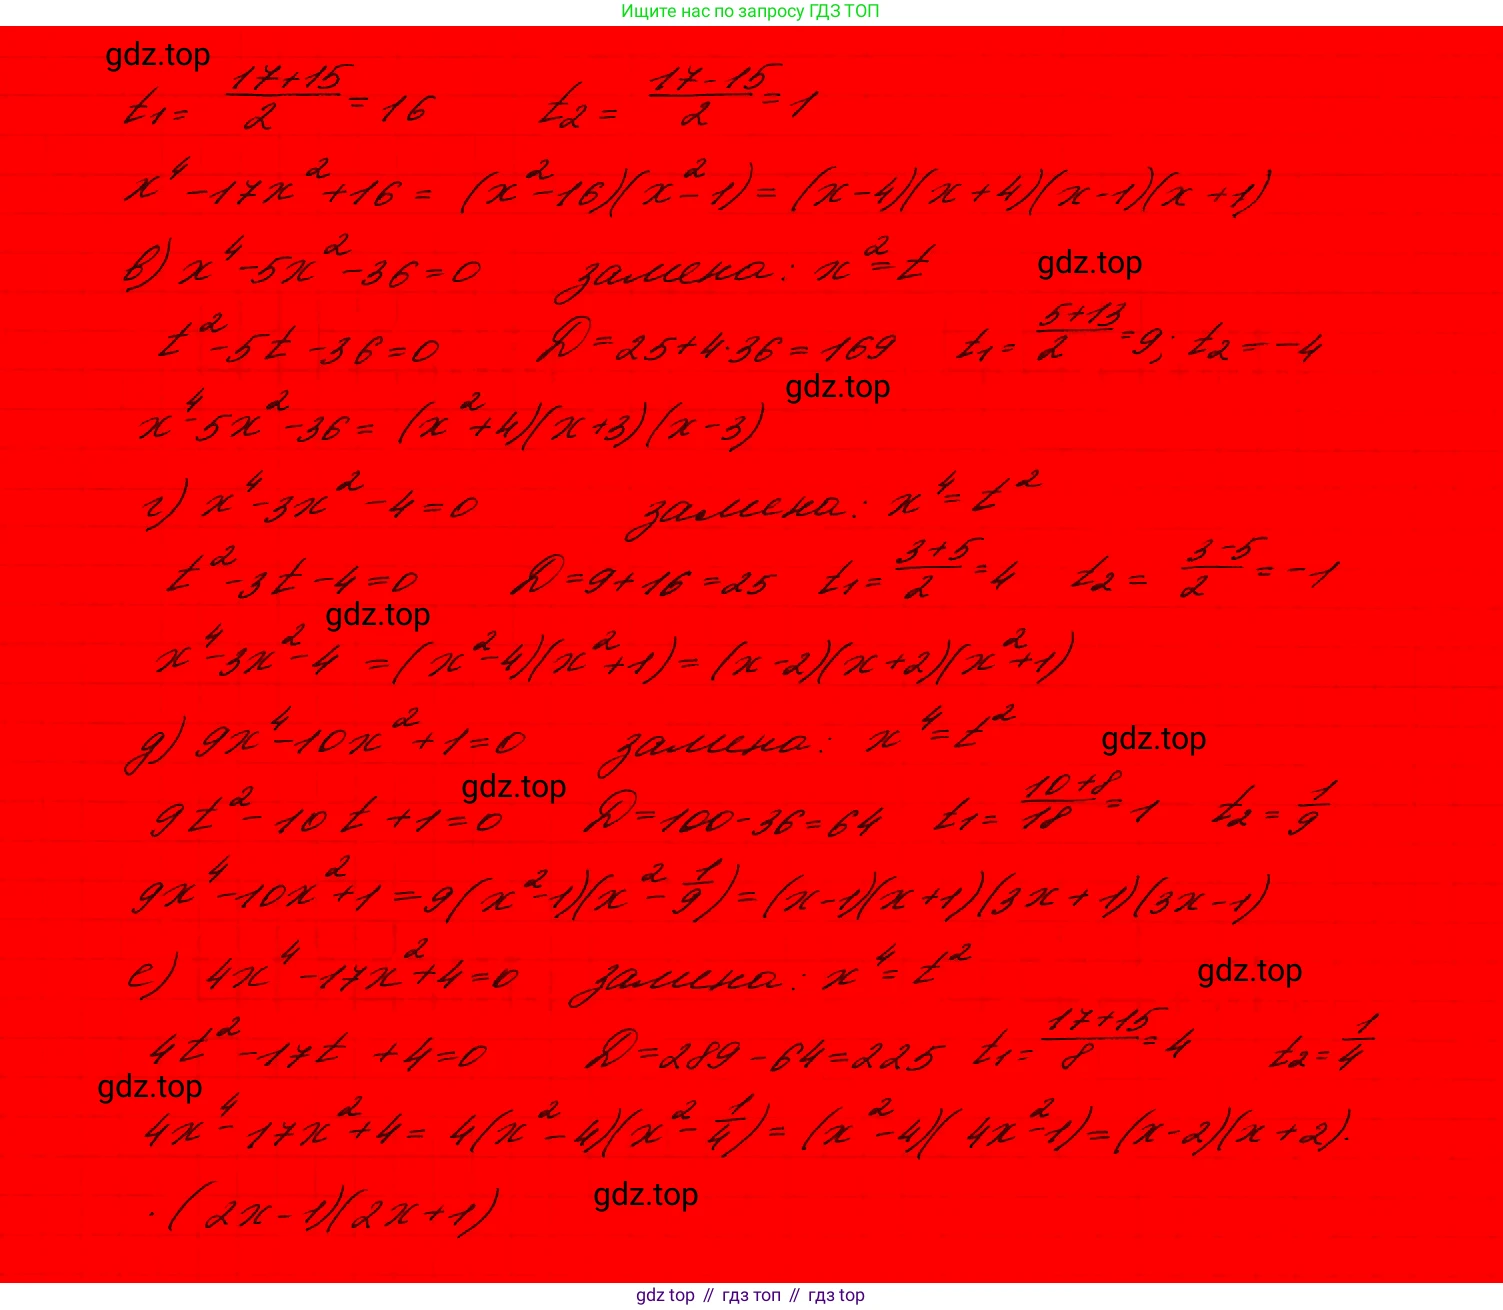 Ищите нас по запросу ГДЗ ТОП
gdz.top
t₁ = (17+15)/2 = 16 t₂ = (17-15)/2 = 1
x⁴-17x²+16 = (x²-16)(x²-1) = (x-4)(x+4)(x-1)(x+1)
в) x⁴-5x²-36=0 замена: x²=t
gdz.top
t²-5t-36=0 D=25+4·36=169 t₁ = (5+13)/2 = 9; t₂ = -4
gdz.top
x⁴-5x²-36 = (x²+4)(x+3)(x-3)
г) x⁴-3x²-4=0 замена: x⁴=t²
t²-3t-4=0 D=9+16=25 t₁ = (3+5)/2 = 4 t₂ = (3-5)/2 = -1
gdz.top
x⁴-3x²-4 = (x²-4)(x²+1) = (x-2)(x+2)(x²+1)
д) 9x⁴-10x²+1=0 замена: x⁴=t²
gdz.top
gdz.top
9t²-10t+1=0 D=100-36=64 t₁ = (10+8)/18 = 1 t₂ = 1/9
9x⁴-10x²+1 = 9(x²-1)(x²-1/9) = (x-1)(x+1)(3x+1)(3x-1)
е) 4x⁴-17x²+4=0 замена: x⁴=t²
gdz.top
4t²-17t+4=0 D=289-64=225 t₁ = (17+15)/8 = 4 t₂ = 1/4
gdz.top
4x⁴-17x²+4 = 4(x²-4)(x²-1/4) = (x²-4)(4x²-1) = (x-2)(x+2)·
·(2x-1)(2x+1)
gdz.top
gdz top // гдз топ // гдз top